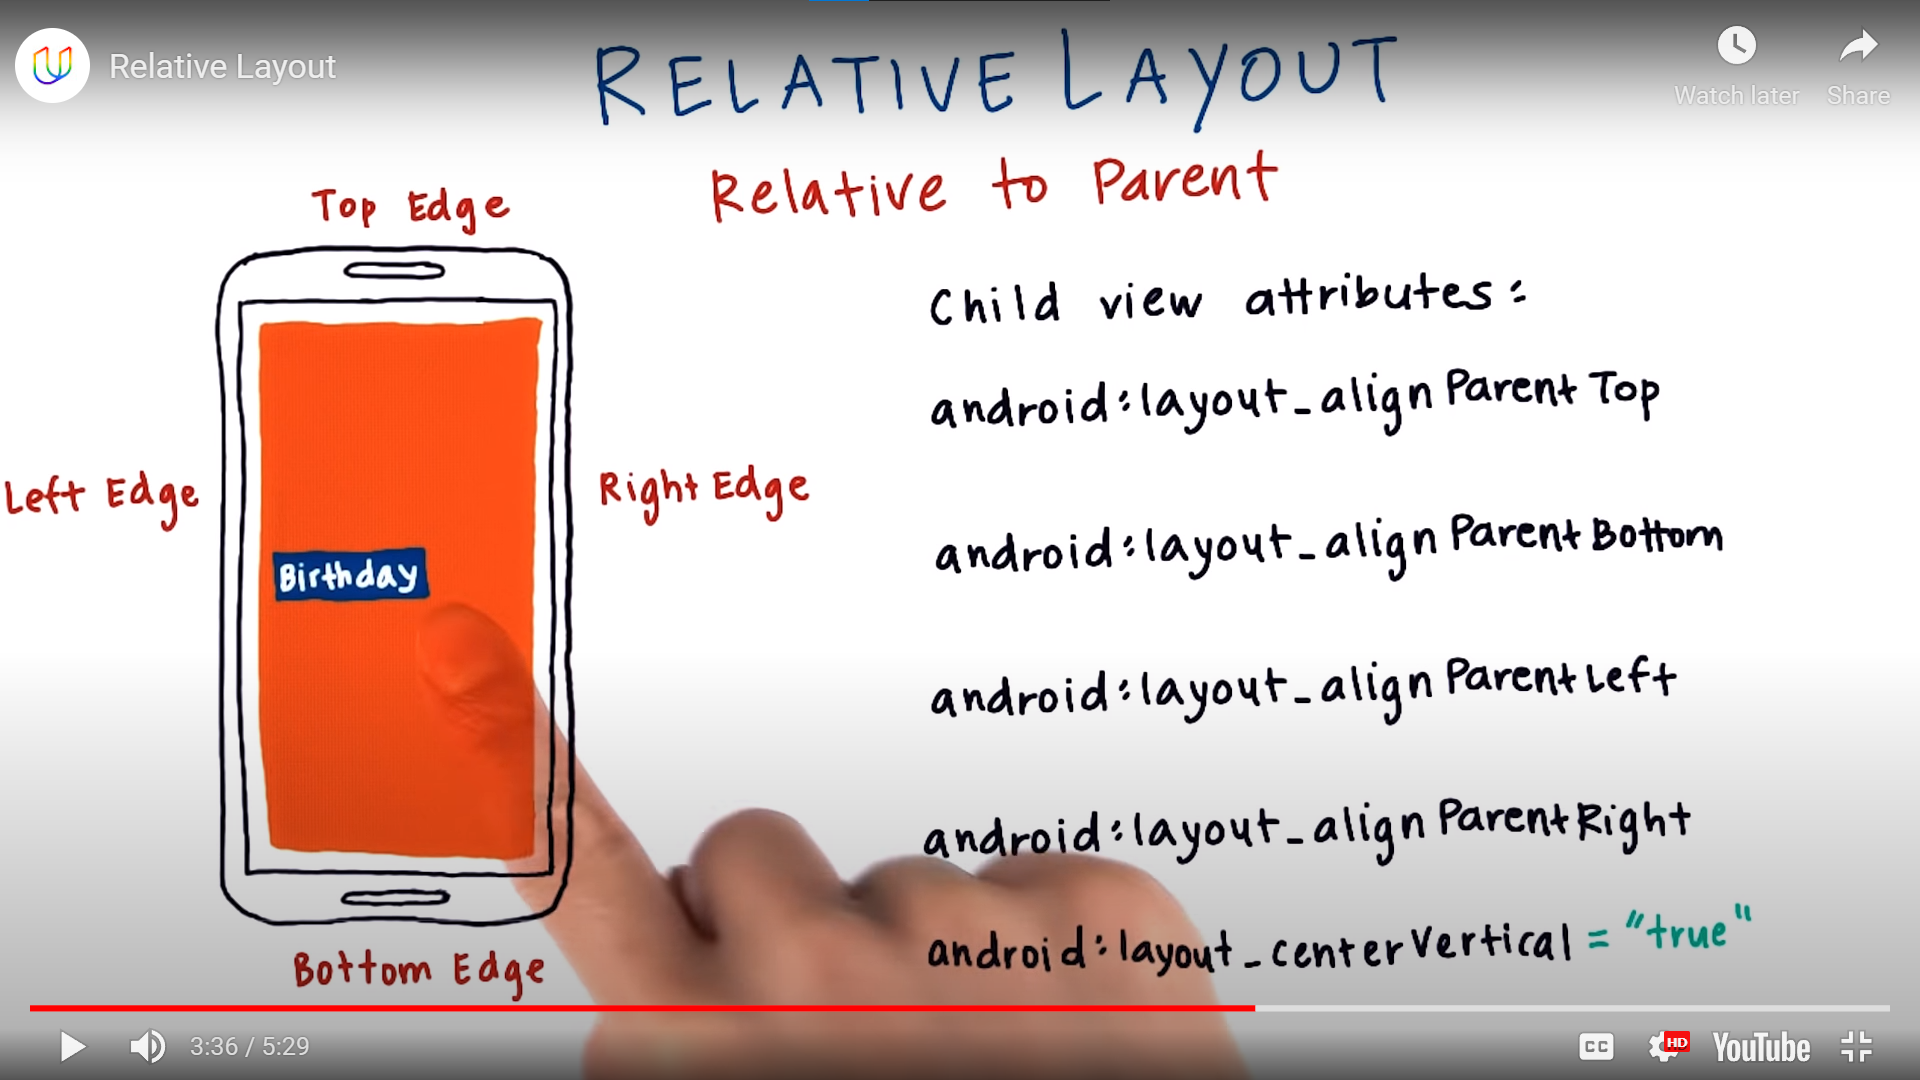 Relative Layout
RELATIVE LAYOUT
Watch later
Share
Relative to Parent
Top Edge
Left Edge
Right Edge
Birthday
Bottom Edge
Child view attributes:
android:layout_alignParentTop
android:layout_alignParentBottom
android:layout_alignParentLeft
android:layout_alignParentRight
android:layout_centerVertical = "true"
3:36 / 5:29
CC
HD
YouTube